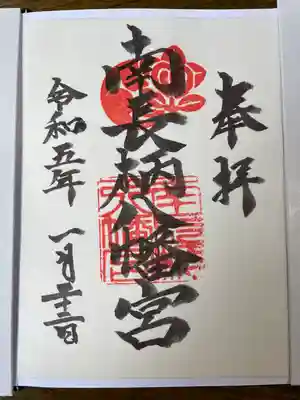 奉拝
南長柄八幡宮
令和五年 一月二十三日